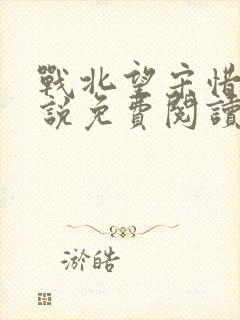 戰北望宋惜
說免費閱讀
淤皓